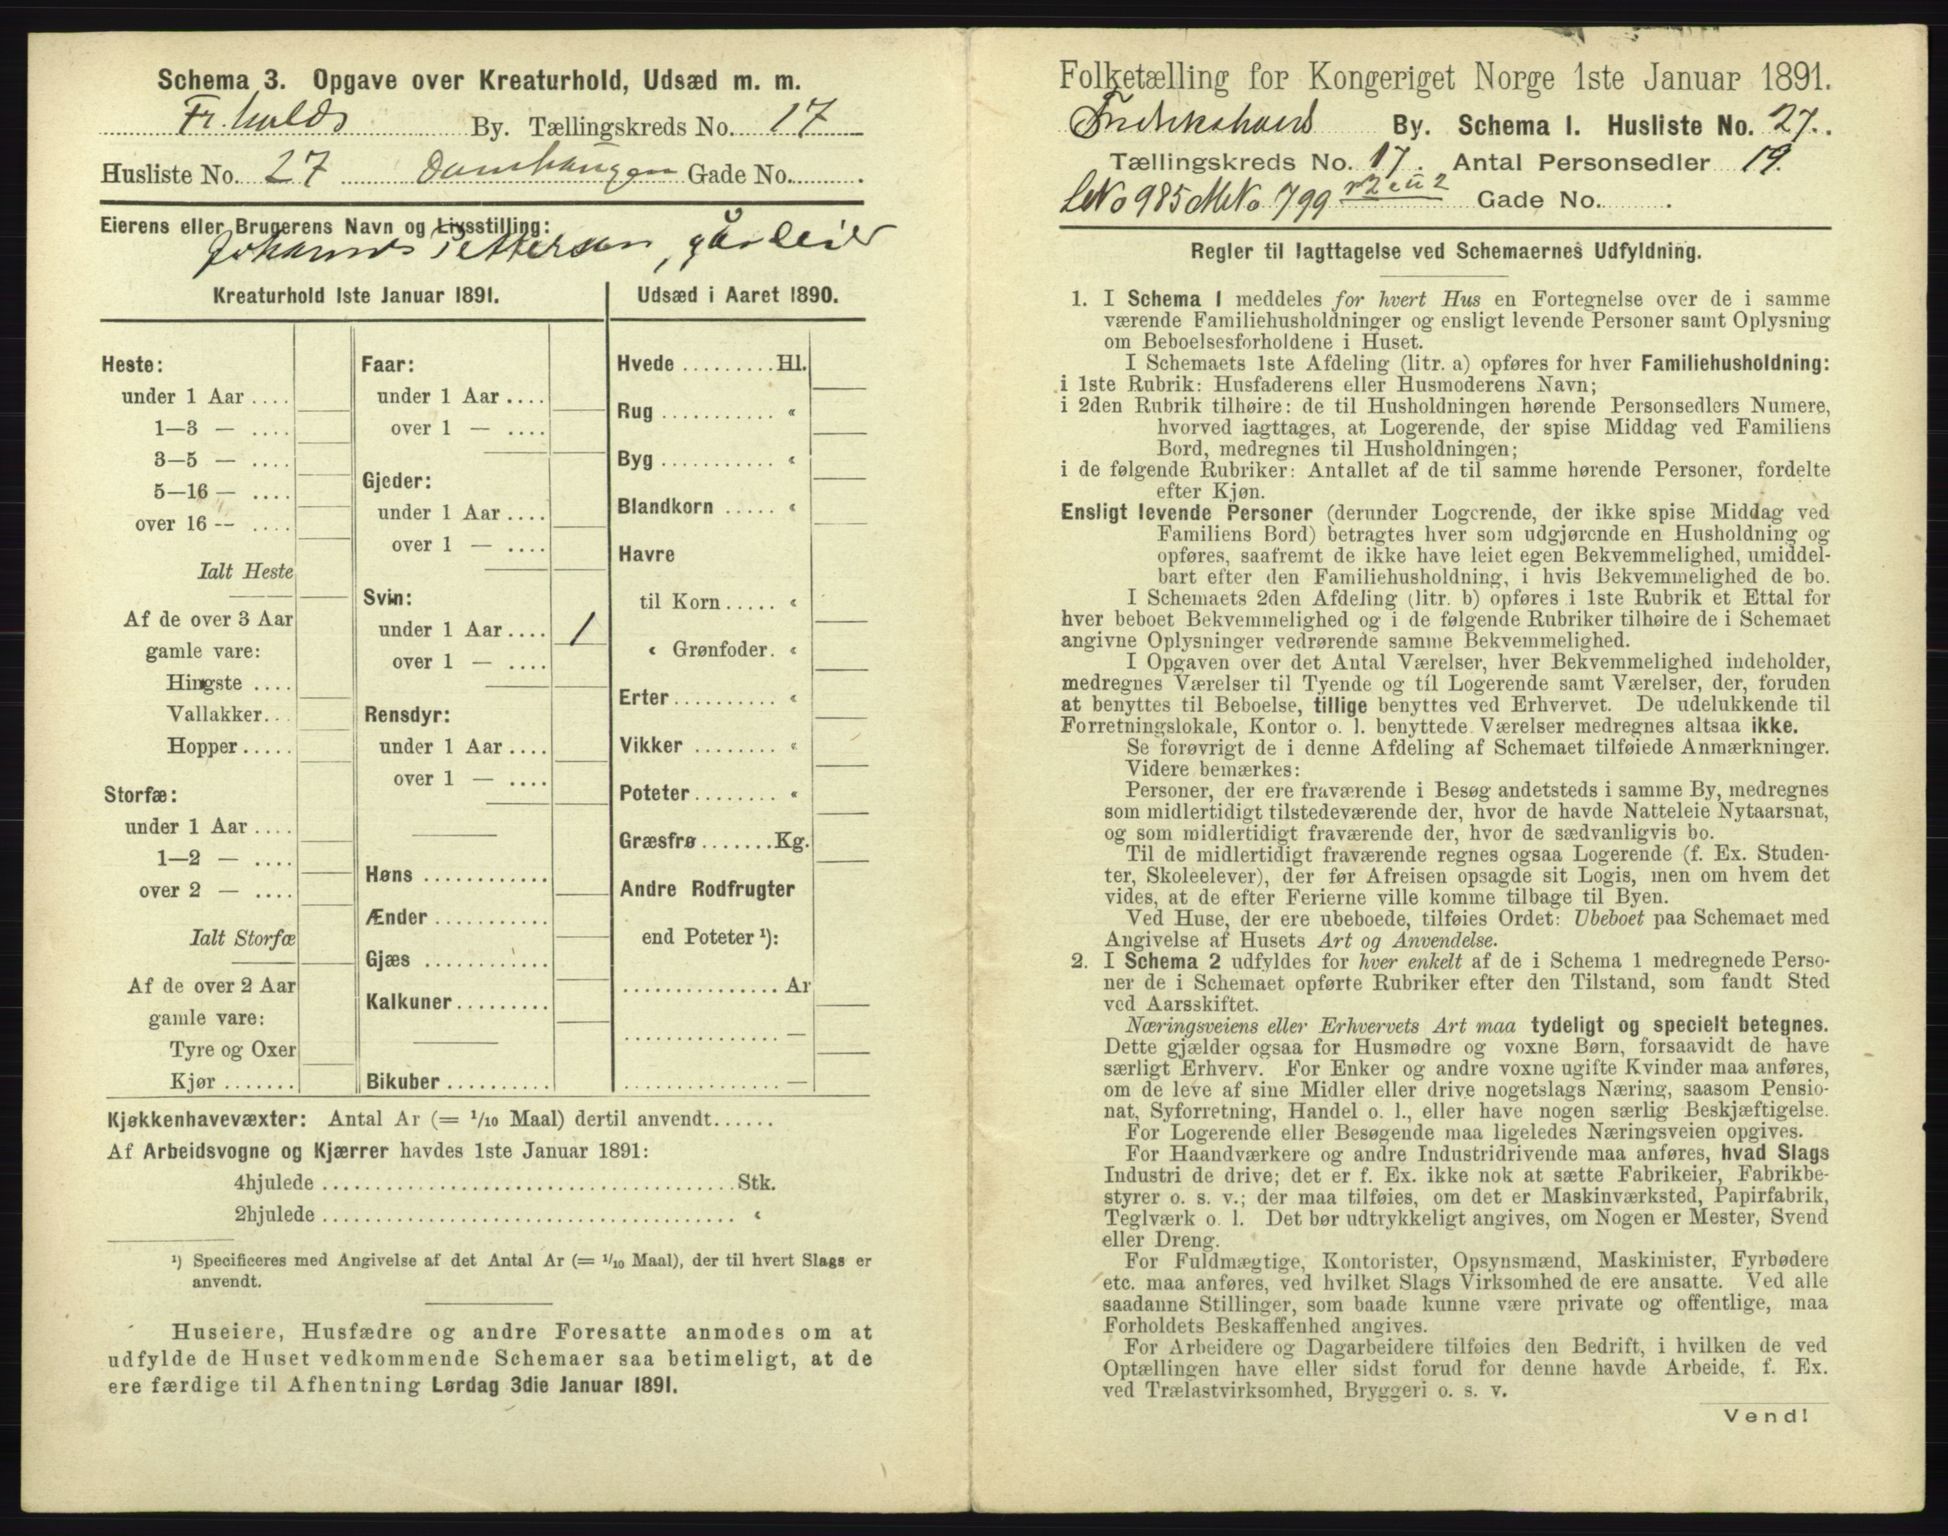 Schema 3. Opgave over Kreaturhold, Udsæd m. m.
Fr.halds By. Tællingskreds No. 17
Husliste No. 27 Damhaugen Gade No.
Eierens eller Brugerens Navn og Livsstilling:
Johannes Pettersen, gårdeier
Kreaturhold 1ste Januar 1891.
Heste:
under 1 Aar ....
1—3 — ....
3—5 — ....
5—16 — ....
over 16 — ....
Ialt Heste
Af de over 3 Aar
gamle vare:
Hingste ....
Vallakker...
Hopper .....
Storfæ:
under 1 Aar ....
1—2 — ....
over 2 — ....
Ialt Storfæ
Af de over 2 Aar
gamle vare:
Tyre og Oxer
Kjør .......
Faar:
under 1 Aar ....
over 1 — ....
Gjeder:
under 1 Aar ....
over 1 — ....
Svin:
under 1 Aar .... 1
over 1 — ....
Rensdyr:
under 1 Aar ....
over 1 — ....
Høns ............
Ænder ...........
Gjæs ............
Kalkuner.........
Bikuber ..........
Udsæd i Aaret 1890.
Hvede ......... Hl.
Rug ........... «
Byg ........... «
Blandkorn ..... «
Havre
til Korn ..... «
« Grønfoder. «
Erter.......... «
Vikker ........ «
Poteter........ «
Græsfrø ....... Kg.
Andre Rodfrugter
end Poteter ¹):
............... Ar
............... —
............... —
Kjøkkenhavevæxter: Antal Ar (= 1/10 Maal) dertil anvendt......
Af Arbeidsvogne og Kjærrer havdes 1ste Januar 1891:
4hjulede ........................................ Stk.
2hjulede ........................................ «
¹) Specificeres med Angivelse af det Antal Ar (= 1/10 Maal), der til hvert Slags er
anvendt.
Huseiere, Husfædre og andre Foresatte anmodes om at
udfylde de Huset vedkommende Schemaer saa betimeligt, at de
ere færdige til Afhentning Lørdag 3die Januar 1891.
Folketælling for Kongeriget Norge 1ste Januar 1891.
Fredrikshald By. Schema I. Husliste No. 27.
Tællingskreds No. 17. Antal Personsedler 19.
LNo 985 MNo 799 Gade No.
Regler til Iagttagelse ved Schemaernes Udfyldning.
1. I Schema I meddeles for hvert Hus en Fortegnelse over de i samme
værende Familiehusholdninger og ensligt levende Personer samt Oplysning
om Beboelsesforholdene i Huset.
I Schemaets 1ste Afdeling (litr. a) opføres for hver Familiehusholdning:
i 1ste Rubrik: Husfaderens eller Husmoderens Navn;
i 2den Rubrik tilhøire: de til Husholdningen hørende Personsedlers Numere,
hvorved iagttages, at Logerende, der spise Middag ved Familiens
Bord, medregnes til Husholdningen;
i de følgende Rubriker: Antallet af de til samme hørende Personer, fordelte
efter Kjøn.
Ensligt levende Personer (derunder Logerende, der ikke spise Middag ved
Familiens Bord) betragtes hver som udgjørende en Husholdning og
opføres, saafremt de ikke have leiet egen Bekvemmelighed, umiddel-
bart efter den Familiehusholdning, i hvis Bekvemmelighed de bo.
I Schemaets 2den Afdeling (litr. b) opføres i 1ste Rubrik et Ettal for
hver beboet Bekvemmelighed og i de følgende Rubriker tilhøire de i Schemaet
angivne Oplysninger vedrørende samme Bekvemmelighed.
I Opgaven over det Antal Værelser, hver Bekvemmelighed indeholder,
medregnes Værelser til Tyende og til Logerende samt Værelser, der, foruden
at benyttes til Beboelse, tillige benyttes ved Erhvervet. De udelukkende til
Forretningslokale, Kontor o. l. benyttede Værelser medregnes altsaa ikke.
Se forøvrigt de i denne Afdeling af Schemaet tilføiede Anmærkninger.
Videre bemærkes:
Personer, der ere fraværende i Besøg andetsteds i samme By, medregnes
som midlertidigt tilstedeværende der, hvor de havde Natteleie Nytaarsnat,
og som midlertidigt fraværende der, hvor de sædvanligvis bo.
Til de midlertidigt fraværende regnes ogsaa Logerende (f. Ex. Studen-
ter, Skoleelever), der før Afreisen opsagde sit Logis, men om hvem det
vides, at de efter Ferierne ville komme tilbage til Byen.
Ved Huse, der ere ubeboede, tilføies Ordet: Ubeboet paa Schemaet med
Angivelse af Husets Art og Anvendelse.
2. I Schema 2 udfyldes for hver enkelt af de i Schema 1 medregnede Perso-
ner de i Schemaet opførte Rubriker efter den Tilstand, som fandt Sted
ved Aarsskiftet.
Næringsveiens eller Erhvervets Art maa tydeligt og specielt betegnes.
Dette gjælder ogsaa for Husmødre og voxne Børn, forsaavidt de have
særligt Erhverv. For Enker og andre voxne ugifte Kvinder maa anføres,
om de leve af sine Midler eller drive nogetslags Næring, saasom Pensio-
nat, Syforretning, Handel o. l., eller have nogen særlig Beskjæftigelse.
For Logerende eller Besøgende maa ligeledes Næringsveien opgives.
For Haandværkere og andre Industridrivende maa anføres, hvad Slags
Industri de drive; det er f. Ex. ikke nok at sætte Fabrikeier, Fabrikbe-
styrer o. s. v.; der maa tilføies, om det er Maskinværksted, Papirfabrik,
Teglværk o. l. Det bør udtrykkeligt angives, om Nogen er Mester, Svend
eller Dreng.
For Fuldmægtige, Kontorister, Opsynsmænd, Maskinister, Fyrbødere
etc. maa anføres, ved hvilket Slags Virksomhed de ere ansatte. Ved alle
saadanne Stillinger, som baade kunne være private og offentlige, maa
Forholdets Beskaffenhed angives.
For Arbeidere og Dagarbeidere tilføies den Bedrift, i hvilken de ved
Optællingen have eller sidst forud for denne havde Arbeide, f. Ex.
ved Trælastvirksomhed, Bryggeri o. s. v.
Vend!